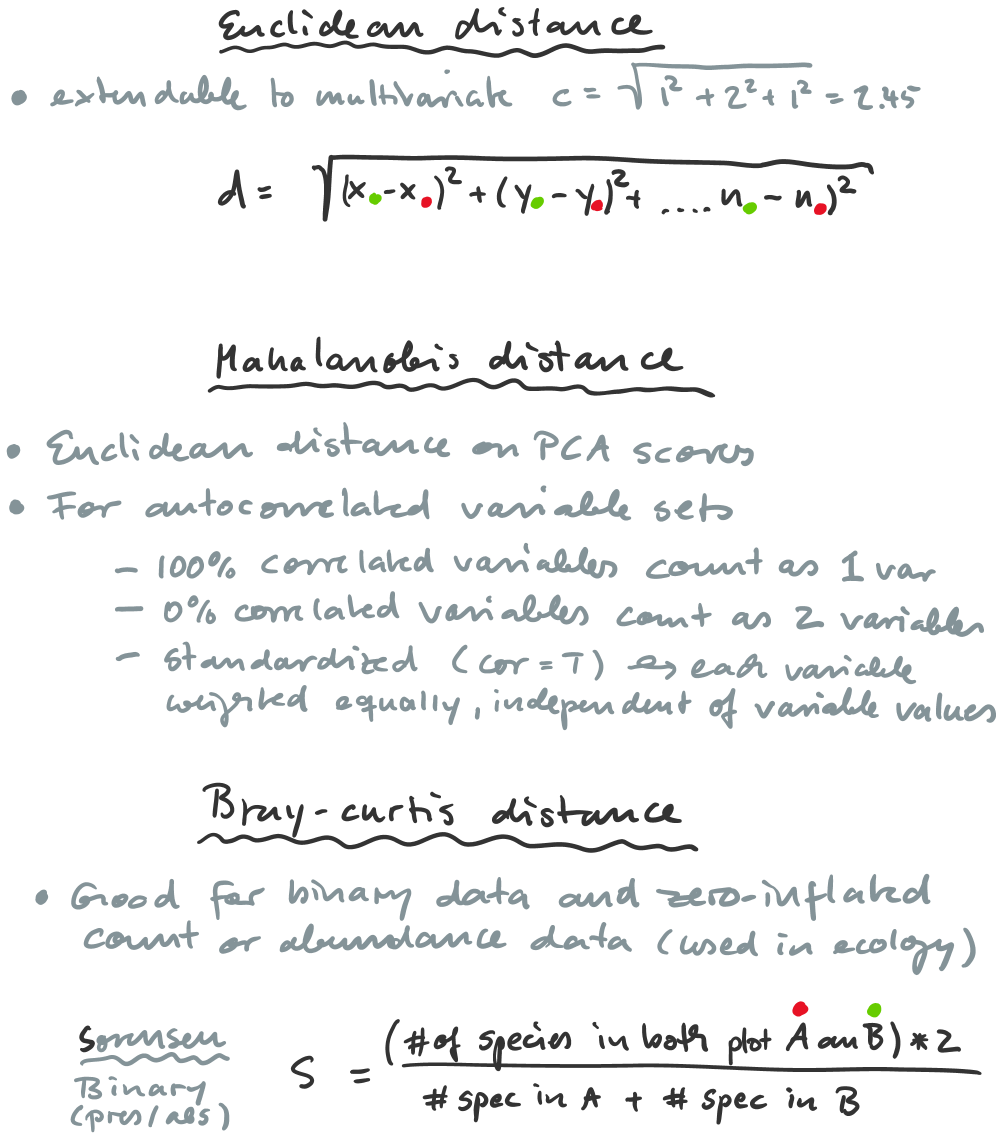 Euclidean distance
• extendable to multivariate c = √1² + 2² + 1² = 2.45
d = √(x - x)² + (y - y)² + .... n - n)²
Mahalanobis distance
• Euclidean distance on PCA scores
• For autocorrelated variable sets
– 100% correlated variables count as 1 var
– 0% correlated variables count as 2 variables
– standardized (cor = T) ↔ each variable
weighted equally, independent of variable values
Bray-curtis distance
• Good for binary data and zero-inflated
count or abundance data (used in ecology)
Sorensen
Binary
(pres/abs)
S = (# of species in both plot A an B) * 2
# spec in A + # spec in B